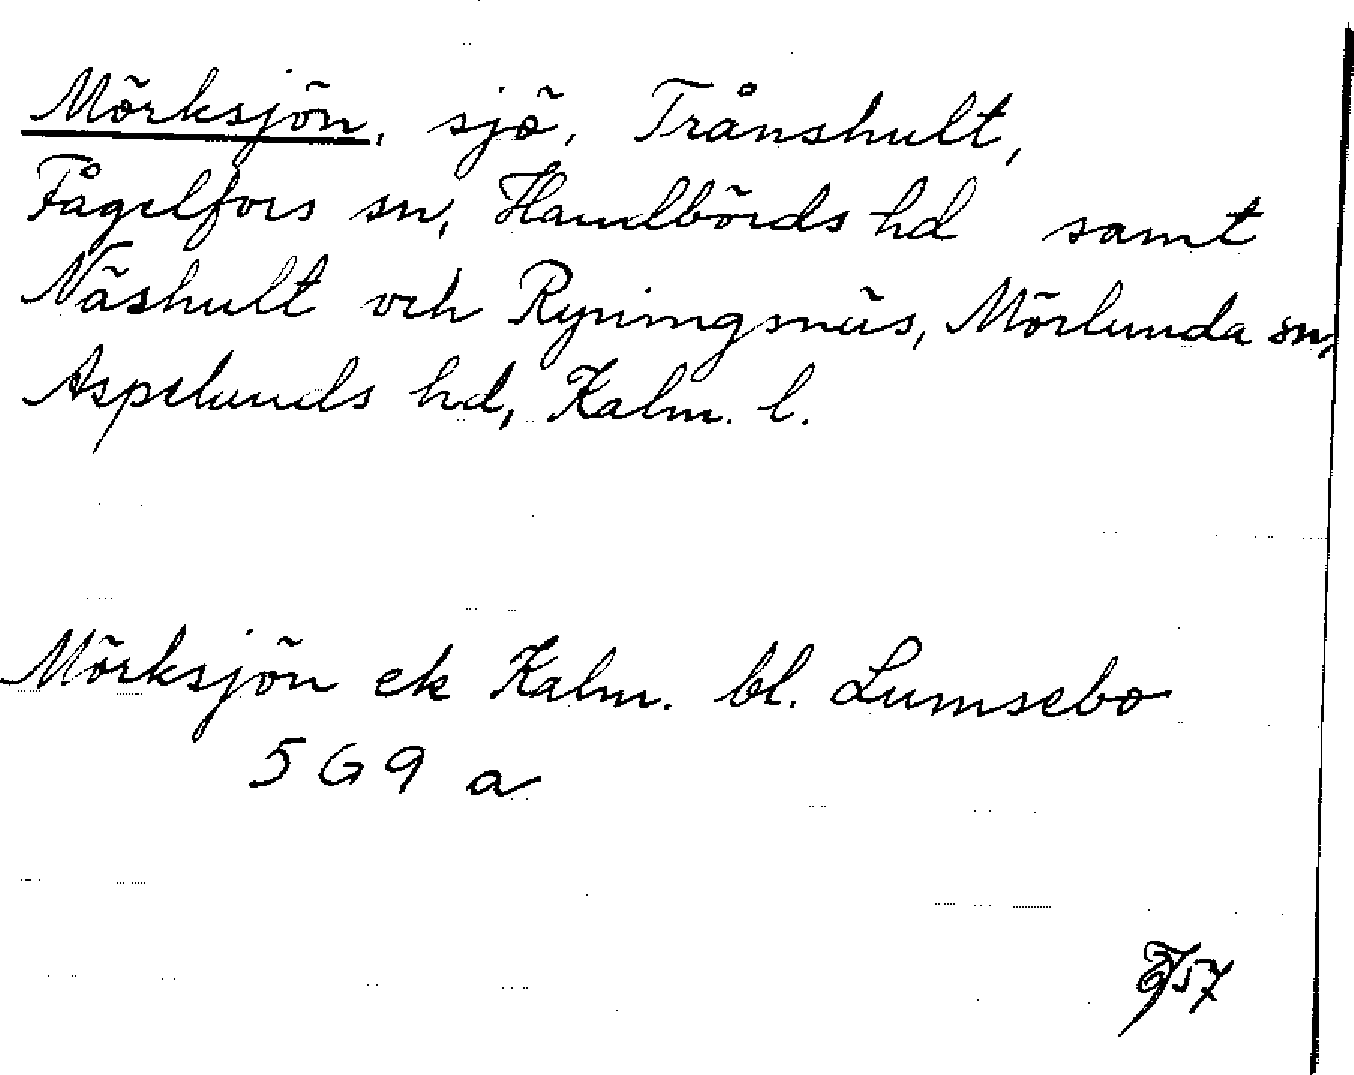 Mörksjön, sjö, Trånshult,
Fågelfors sn, Handbörds hd samt
Näshult och Ryningsnäs, Mörlunda sn,
Aspelands hd, Kalm. l.
Mörksjön ek Kalm. bl. Lumsebo
5 G 9 a